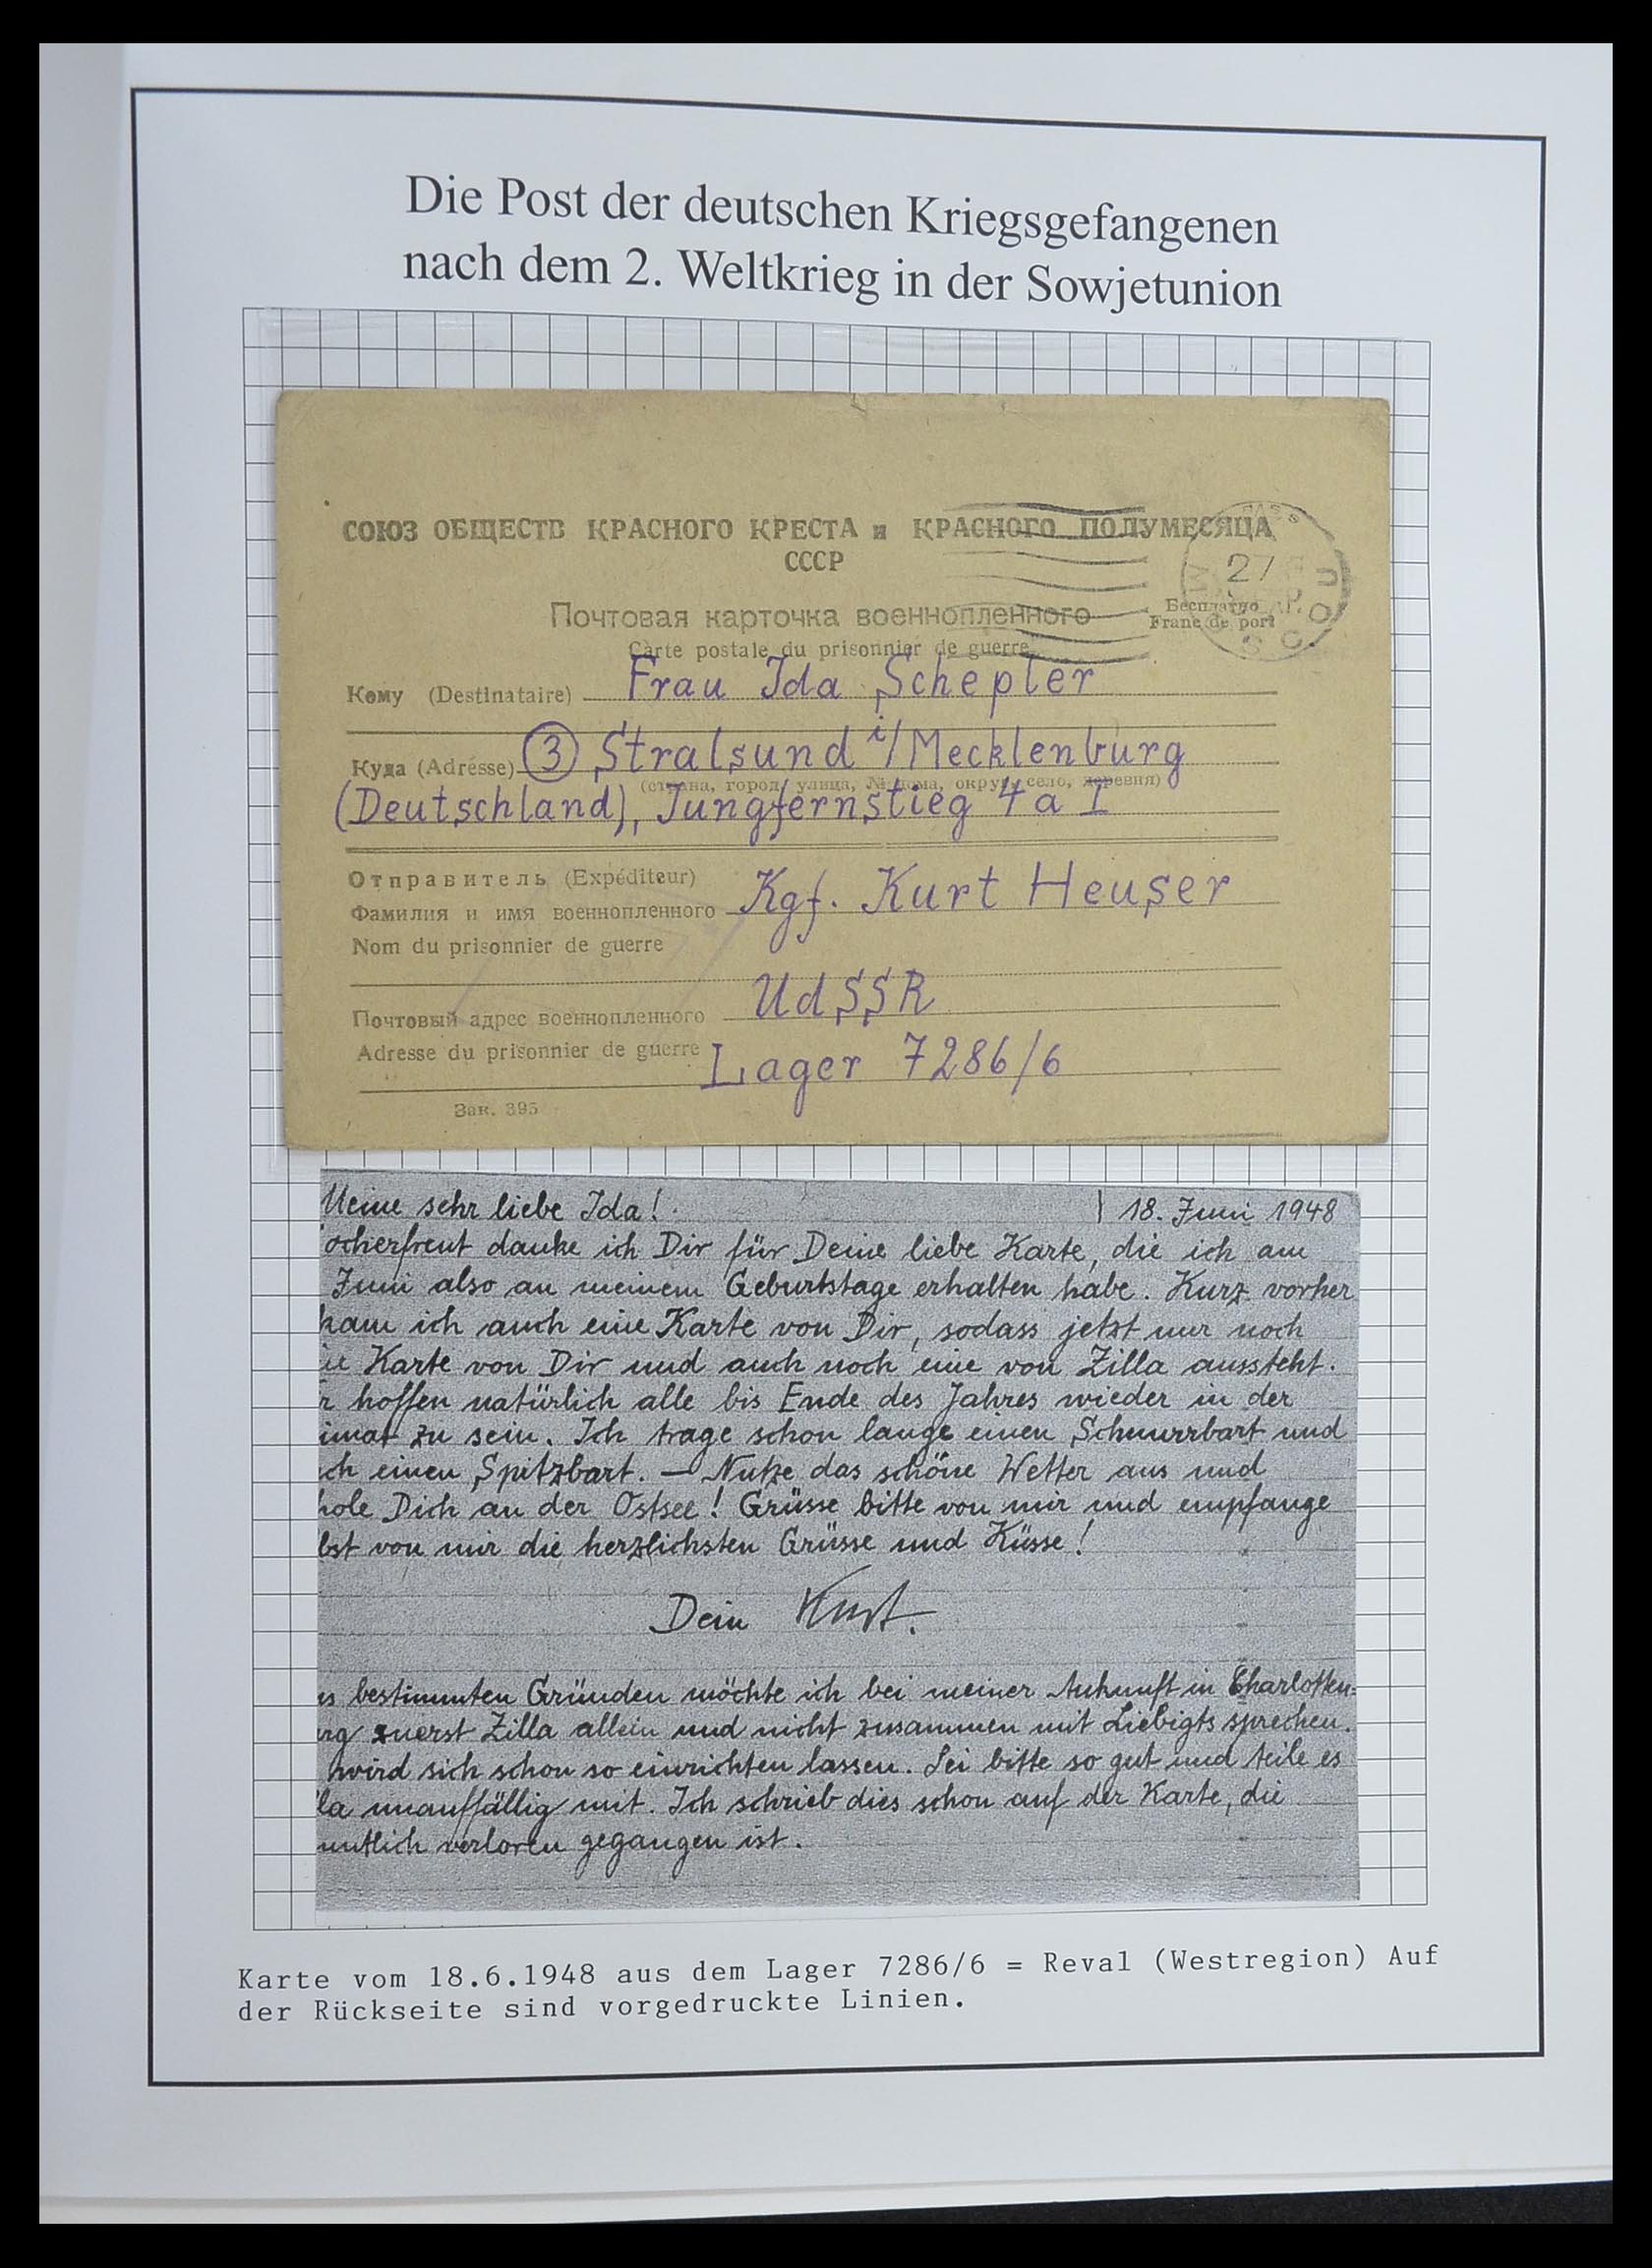 Die Post der deutschen Kriegsgefangenen
nach dem 2. Weltkrieg in der Sowjetunion
СОЮЗ ОБЩЕСТВ КРАСНОГО КРЕСТА и КРАСНОГО ПОЛУМЕСЯЦА
СССР
Почтовая карточка военнопленного
Бесплатно
Franc de port
27
Carte postale du prisonnier de guerre
Кому (Destinataire) Frau Ida Schepler
Куда (Adresse) 3 Stralsund i/Mecklenburg
(страна, город, улица, № дома, округ, село, деревня)
(Deutschland), Jungfernstieg 4a I
Отправитель (Expéditeur)
Фамилия и имя военнопленного Kgf. Kurt Heuser
Nom du prisonnier de guerre
Почтовый адрес военнопленного UdSSR
Adresse du prisonnier de guerre Lager 7286/6
Зак. 395
Meine sehr liebe Ida! 18. Juni 1948
ocherfreut danke ich Dir für Deine liebe Karte, die ich am
Juni also an meinem Geburtstage erhalten habe. Kurz vorher
kam ich auch eine Karte von Dir, sodass jetzt nur noch
ie Karte von Dir und auch noch eine von Zilla aussteht.
r hoffen natürlich alle bis Ende des Jahres wieder in der
imat zu sein. Ich trage schon lange einen Schnurrbart und
ch einen Spitzbart. — Nutze das schöne Wetter aus und
hole Dich an der Ostsee! Grüsse bitte von mir und empfange
lbst von mir die herzlichsten Grüsse und Küsse!
Dein Kurt.
us bestimmten Gründen möchte ich bei meiner Ankunft in Charlotten-
urg zuerst Zilla allein und nicht zusammen mit Liebigts sprechen.
wird sich schon so einrichten lassen. Sei bitte so gut und teile es
la unauffällig mit. Ich schrieb dies schon auf der Karte, die
mutlich verloren gegangen ist.
Karte vom 18.6.1948 aus dem Lager 7286/6 = Reval (Westregion) Auf
der Rückseite sind vorgedruckte Linien.